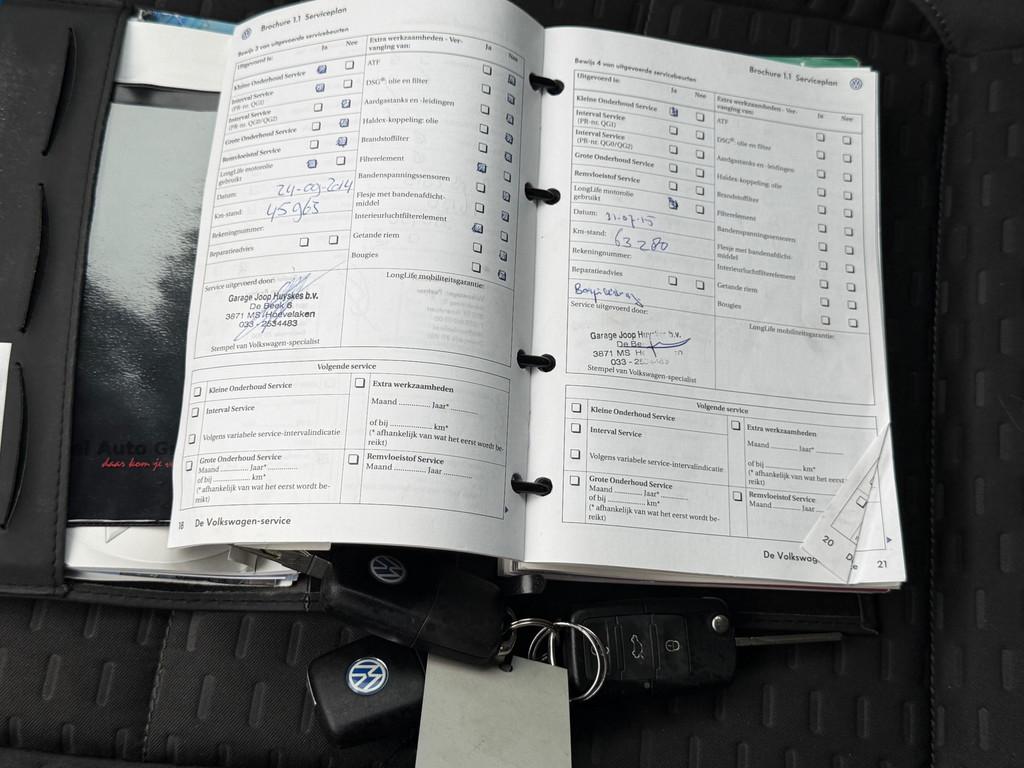 Brochure 1.1 Serviceplan
Bewijs 3 van uitgevoerde servicebeurten
Uitgevoerd is:
Ja Nee
Kleine Onderhoud Service
Interval Service
(PR-nr. QG1)
Interval Service
(PR-nr. QG0/QG2)
Grote Onderhoud Service
Remvloeistof Service
LongLife motorolie
gebruikt
Datum: 24-09-2014
Km-stand: 45963
Rekeningnummer:
Reparatieadvies
Service uitgevoerd door:
Garage Joop Huyskes b.v.
De Beek 6
3871 MS Hoevelaken
033 - 2534483
Stempel van Volkswagen-specialist
Extra werkzaamheden - Ver-
vanging van:
Ja Nee
ATF
DSG®: olie en filter
Aardgastanks en -leidingen
Haldex-koppeling: olie
Brandstoffilter
Filterelement
Bandenspanningssensoren
Flesje met bandenafdicht-
middel
Interieurluchtfilterelement
Getande riem
Bougies
LongLife mobiliteitsgarantie:
Volgende service
Kleine Onderhoud Service
Interval Service
Volgens variabele service-intervalindicatie
Grote Onderhoud Service
Maand .............. Jaar* ..............
of bij .............. km*
(* afhankelijk van wat het eerst wordt be-
reikt)
Extra werkzaamheden
Maand .............. Jaar* ..............
of bij .............. km*
(* afhankelijk van wat het eerst wordt be-
reikt)
Remvloeistof Service
Maand .............. Jaar ..............
18 De Volkswagen-service
Brochure 1.1 Serviceplan
Bewijs 4 van uitgevoerde servicebeurten
Uitgevoerd is:
Ja Nee
Kleine Onderhoud Service
Interval Service
(PR-nr. QG1)
Interval Service
(PR-nr. QG0/QG2)
Grote Onderhoud Service
Remvloeistof Service
LongLife motorolie
gebruikt
Datum: 31.07.15
Km-stand: 63280
Rekeningnummer:
Reparatieadvies
Service uitgevoerd door:
Garage Joop b.v.
3871 MS
033 -
Stempel van Volkswagen-specialist
Extra werkzaamheden - Ver-
vanging van:
Ja Nee
ATF
DSG®: olie en filter
Aardgastanks en -leidingen
Haldex-koppeling: olie
Brandstoffilter
Filterelement
Bandenspanningssensoren
Flesje met bandenafdicht-
middel
Interieurluchtfilterelement
Getande riem
Bougies
LongLife mobiliteitsgarantie:
Volgende service
Kleine Onderhoud Service
Interval Service
Volgens variabele service-intervalindicatie
Grote Onderhoud Service
Maand .............. Jaar* ..............
of bij .............. km*
(* afhankelijk van wat het eerst wordt be-
reikt)
Extra werkzaamheden
Maand .............. Jaar*
of bij .............. km*
(* afhankelijk van wat het eerst
reikt)
Remvloeistof Service
Maand .............. Jaar
20
De Volkswag e 21
Auto
daar kom je